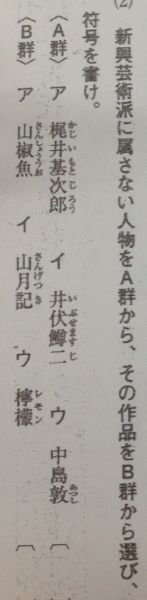 (2) 新興芸術派に属さない人物をA群から、その作品をB群から選び、
符号を書け。
〈A群〉ア 梶井基次郎 イ 井伏鱒二 ウ 中島敦 〔
〈B群〉ア 山椒魚 イ 山月記 ウ 檸檬 〔